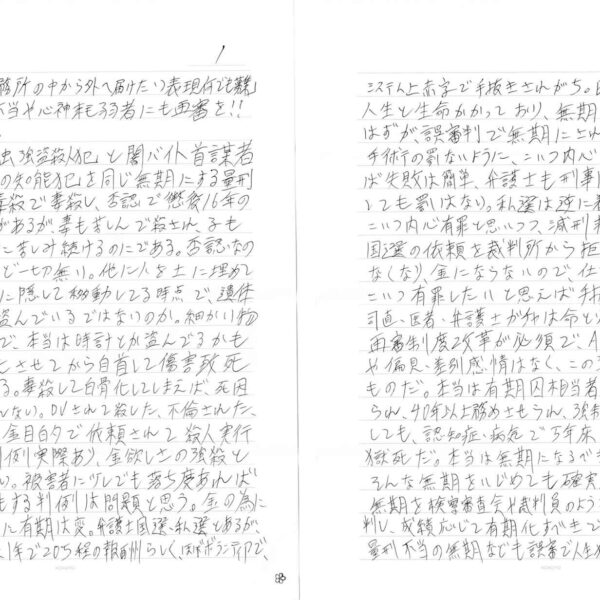 1
務所の中から外へ届けたい表現何でも難」
不当や心神耗弱者にも再審を!!
虫強盗殺人犯」と闇バイト首謀者
の知能犯」を同じ無期にする量刑
毒殺で毒殺し、否認で懲役16年の
があるが、毒も苦しんで殺され、子も
に苦しみ続けるのにである。否認なの
ど一切無い。他に人を土に埋めて
に隠して移動してる時点で、遺体
盗んでいるではないのか。細かい物
で、本当は時計とか盗んでるかも
とさせてから自首して傷害致死
る。毒殺して白骨化してしまえば、死因
んない。DVされて殺した、不倫された、
金目的で依頼されて殺人実行
判例実際あり、金欲しさの強殺と
い。被害者に少しでも落ち度あれば
もする判例は問題と思う。金の為に
に有期は変。弁護士国選・私選とあるが、
1年で20万程の報酬らしく、ほぼボランティアで、
KOKUYO
システム上赤字で手抜きされがち。
人生と生命かかっており、無期
はずが、誤審判で無期にされ
手術の罰ないように、こいつ内心
ば失敗は簡単、弁護士も刑事
しても罪はない。私選は逆に
こいつ内心有罪と思いつつ、減刑
国選の依頼を裁判所から拒
なくなり、金にならないので、仕
こいつ有罪したいと思えば手
司直・医者・弁護士ガチャは命と
再審制度改革が必須で、A
や偏見・差別感情はなく、この
ものだ。本当は有期囚相当者
られ、40年以上務めさせられ、強
しても、認知症・病気で万年床
獄死だ。本当は無期になるべき
そんな無期をいじめても確実
無期を検察審査会や裁判員のよう
判し、成績応じて有期化すべきで
量刑不当の無期なども誤審で人生
KOKUYO